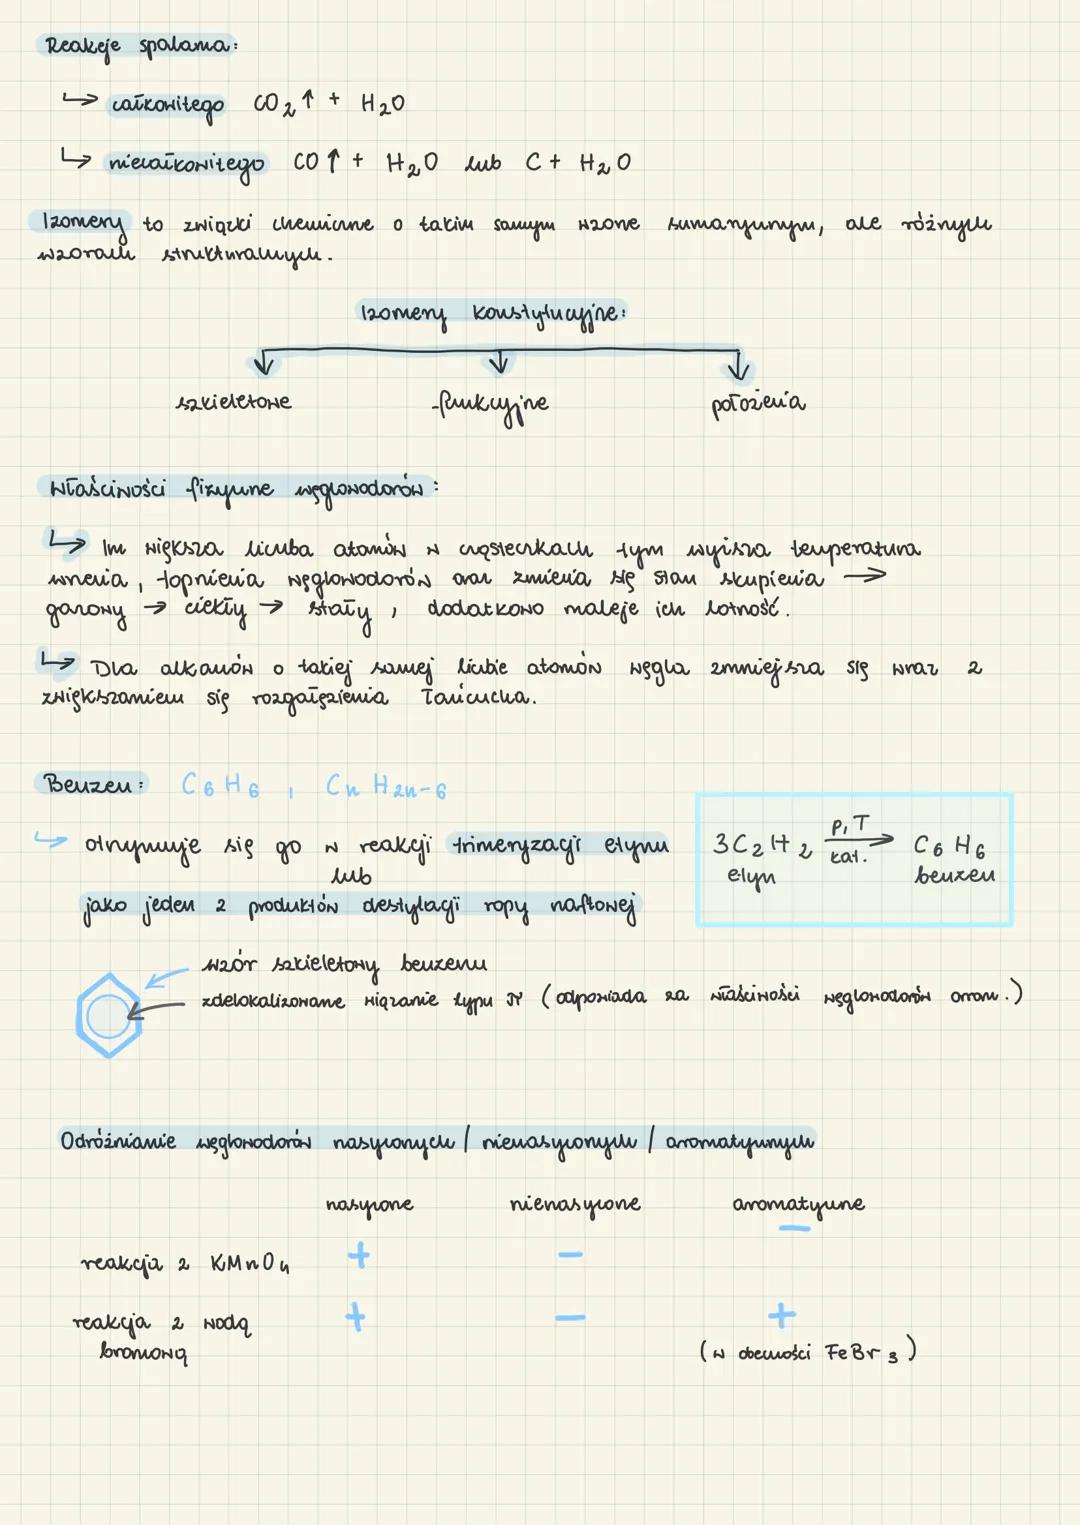 Reakcje spalania:
↳ całkowitego CO2↑ + H2O
↳ niecałkowitego CO↑ + H2O lub C + H2O
Izomery to związki chemiczne o takim samym wzorze sumarycznym, ale różnych
wzorach strukturalnych.
Izomery konstytucyjne:
szkieletowe funkcyjne położenia
Właściwości fizyczne węglowodorów:
↳ Im większa liczba atomów w cząsteczkach tym wyższa temperatura
wrzenia, topnienia węglowodorów oraz zmienia się stan skupienia →
gazowy → ciekły → stały, dodatkowo maleje ich lotność.
↳ Dla alkanów o takiej samej liczbie atomów węgla zmniejsza się wraz z
zwiększaniem się rozgałęzienia łańcucha.
Benzen: C6H6, CnH2n-6
↳ otrzymuje się go w reakcji trimeryzacji etynu
lub
jako jeden z produktów destylacji ropy naftowej
3C2H2 p,T → kat. C6H6
etyn benzen
wzór szkieletowy benzenu
zdelokalizowane wiązanie typu π (odpowiada za właściwości węglowodorów arom.)
Odróżnianie węglowodorów nasyconych / nienasyconych / aromatycznych
nasycone nienasycone aromatyczne
reakcja z KMnO4 + − −
reakcja z wodą + − +
bromową (w obecności FeBr3)